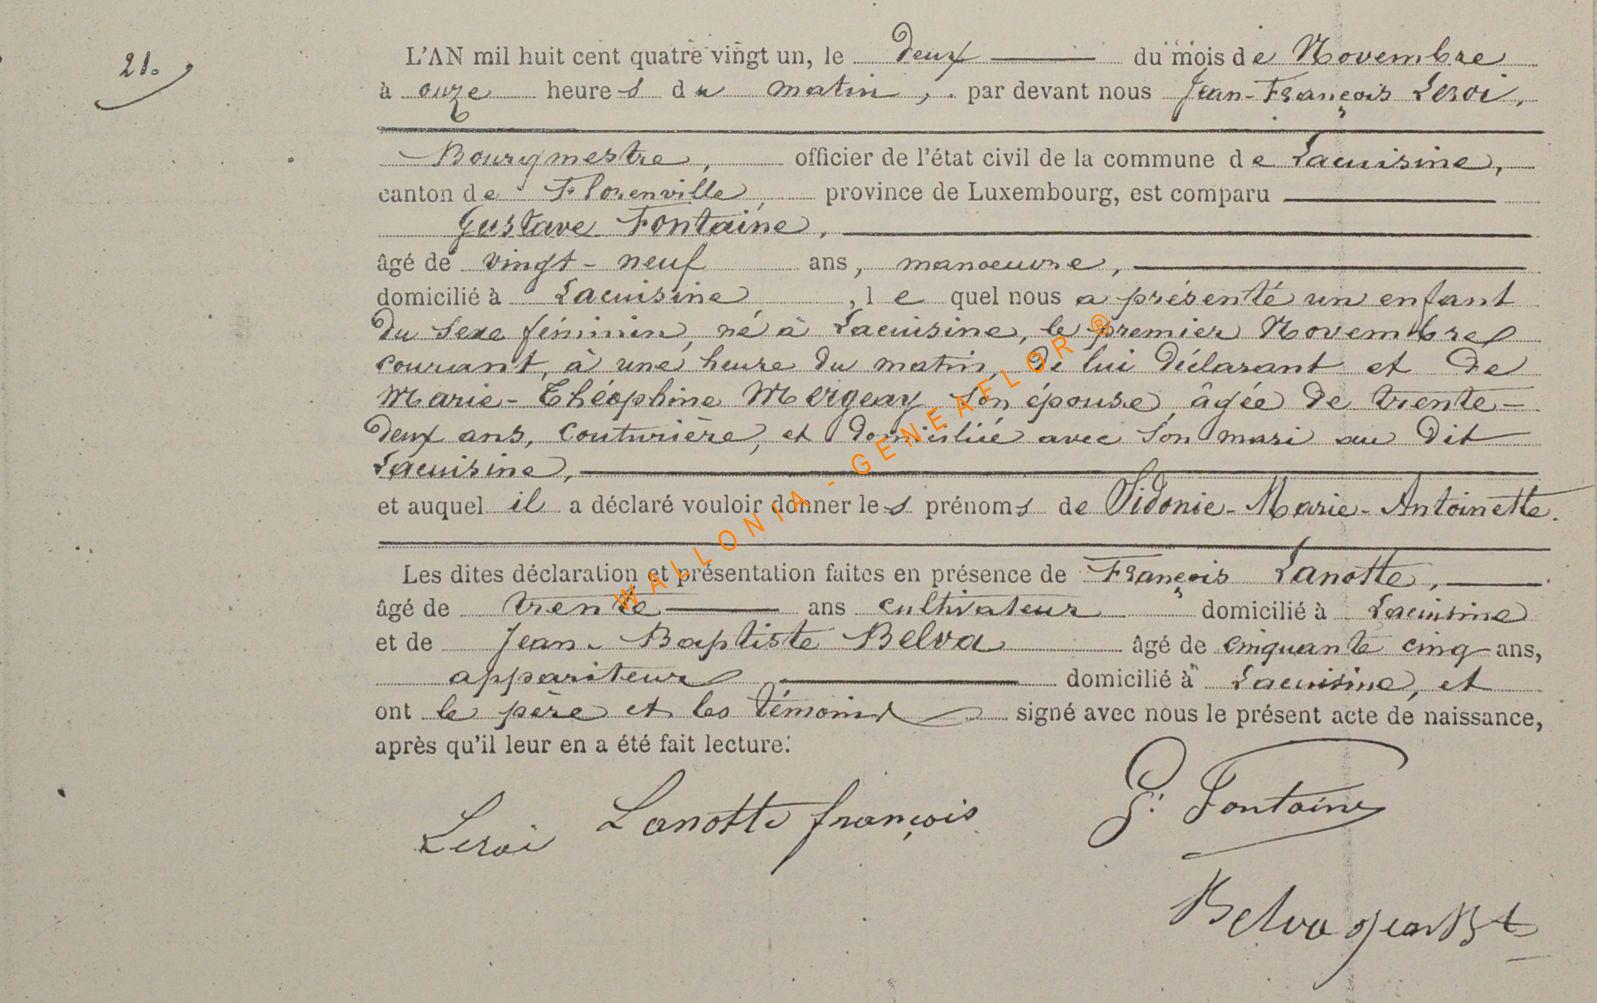 21.
L'AN mil huit cent quatre vingt un, le deux du mois de Novembre
à onze heures du matin, par devant nous Jean-François Leroi,
Bourgmestre, officier de l'état civil de la commune de Lacuisine,
canton de Florenville, province de Luxembourg, est comparu
Gustave Fontaine,
âgé de vingt-neuf ans, manoeuvre,
domicilié à Lacuisine, lequel nous a présenté un enfant
du sexe féminin, né à Lacuisine, le premier Novembre
courant, à une heure du matin, de lui déclarant et de
Marie-Théophine Mergeay son épouse, âgée de trente-
deux ans, couturière, et domiciliée avec son mari au dit
Lacuisine,
et auquel il a déclaré vouloir donner les prénoms de Sidonie-Marie-Antoinette.
Les dites déclaration et présentation faites en présence de François Lanotte,
âgé de trente ans cultivateur domicilié à Lacuisine
et de Jean-Baptiste Belva âgé de cinquante cinq ans,
appariteur domicilié à Lacuisine, et
ont le père et les témoins signé avec nous le présent acte de naissance,
après qu'il leur en a été fait lecture.
Leroi Lanotte françois G. Fontaine
Belva Jean Bte
WALLONIA-GENEAFLOR ®